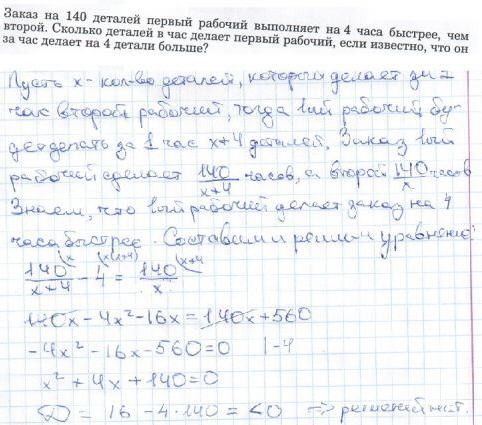 Заказ на 140 деталей первый рабочий выполняет на 4 часа быстрее, чем
второй. Сколько деталей в час делает первый рабочий, если известно, что он
за час делает на 4 детали больше?
Пусть x - кол-во деталей, которые делает за 1
час второй рабочий, тогда 1ый рабочий бу-
дет делать за 1 час x+4 деталей. Заказ 1ый
рабочий сделает 140/(x+4) часов, а второй 140/x часов
Знаем, что 1ый рабочий делает заказ на 4
часа быстрее. Составим и решим уравнение:
140/(x+4) (x - 4 (x(x+4) = 140/x (x+4
140x - 4x² - 16x = 140x + 560
-4x² - 16x - 560 = 0 | -4
x² + 4x + 140 = 0
D = 16 - 4·140 = <0 => решений нет.